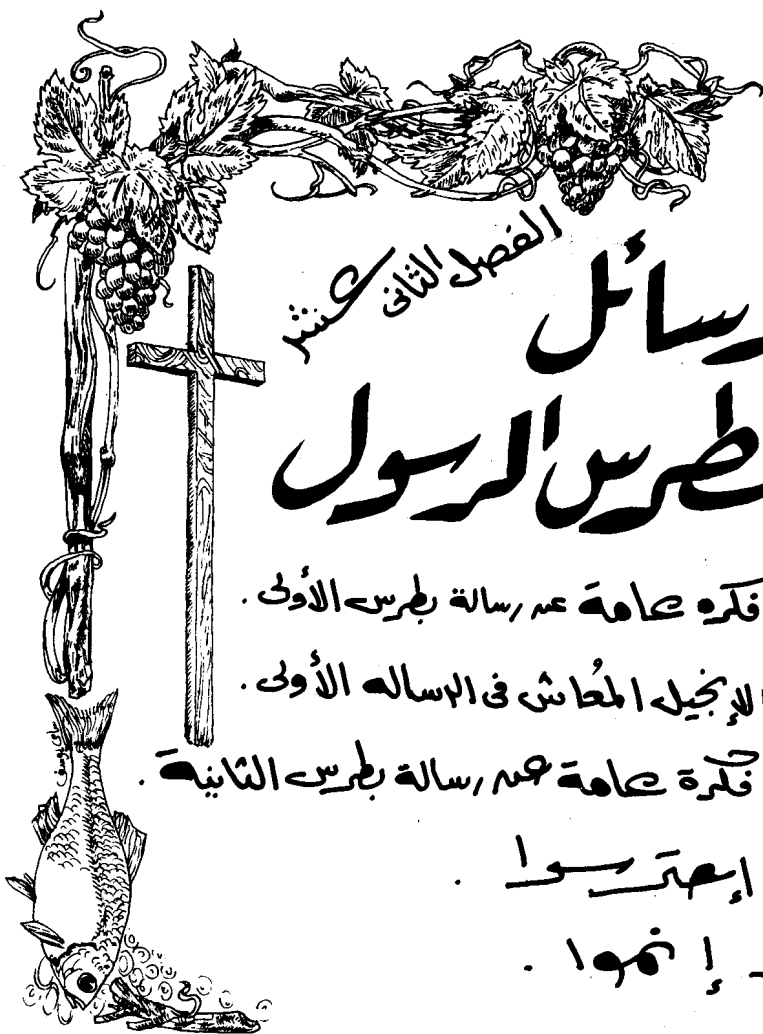 الفصل الثانى عشر
رسائل
بطرس الرسول
فكره عامة عن رسالة بطرس الأولى .
الإنجيل المُعاش فى الرساله الأولى .
فكرة عامة عن رسالة بطرس الثانية .
إحترسوا .
إنموا .